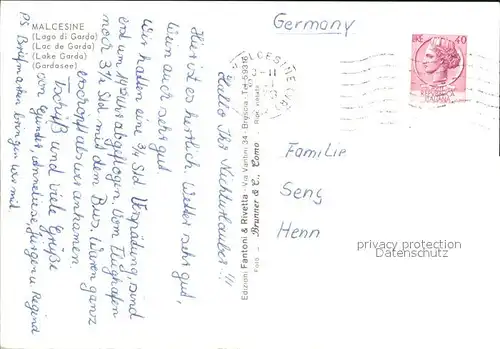 MALCESINE
(Lago di Garda)
(Lac de Garda)
(Lake Garda)
(Gardasee)
Hallo Ihr Nichturlauber!!!
Hier ist es herrlich. Wetter sehr gut,
Wein auch sehr gut.
Wir hatten eine 3/4 Std Verspätung, sind
erst um 19 Uhr abgeflogen. Vom Flughafen
noch 3 1/2 Std mit dem Bus. Waren ganz
als wir ankamen.
Tschüß und viele Grüße
von Anneliese Jürgen u. Regina
PS Briefmarken bringen wir mit.
Edizioni Fantoni & Rivetta - Via Vantini, 34 - Brescia - Tel. 59316
Foto - Brunner & C., Como - Ripr. vietata
Germany
MALCESINE
40
Familie
Seng
Henn
personality protection
Datenschutz